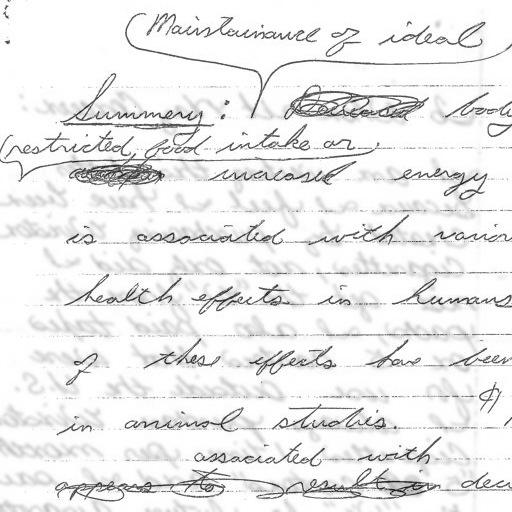 Maintainance of ideal
Summery: body
restricted, food intake or
increased energy
is associated with
health effects in humans
of these effects have been
in animal studies.
associated with
appears to result in